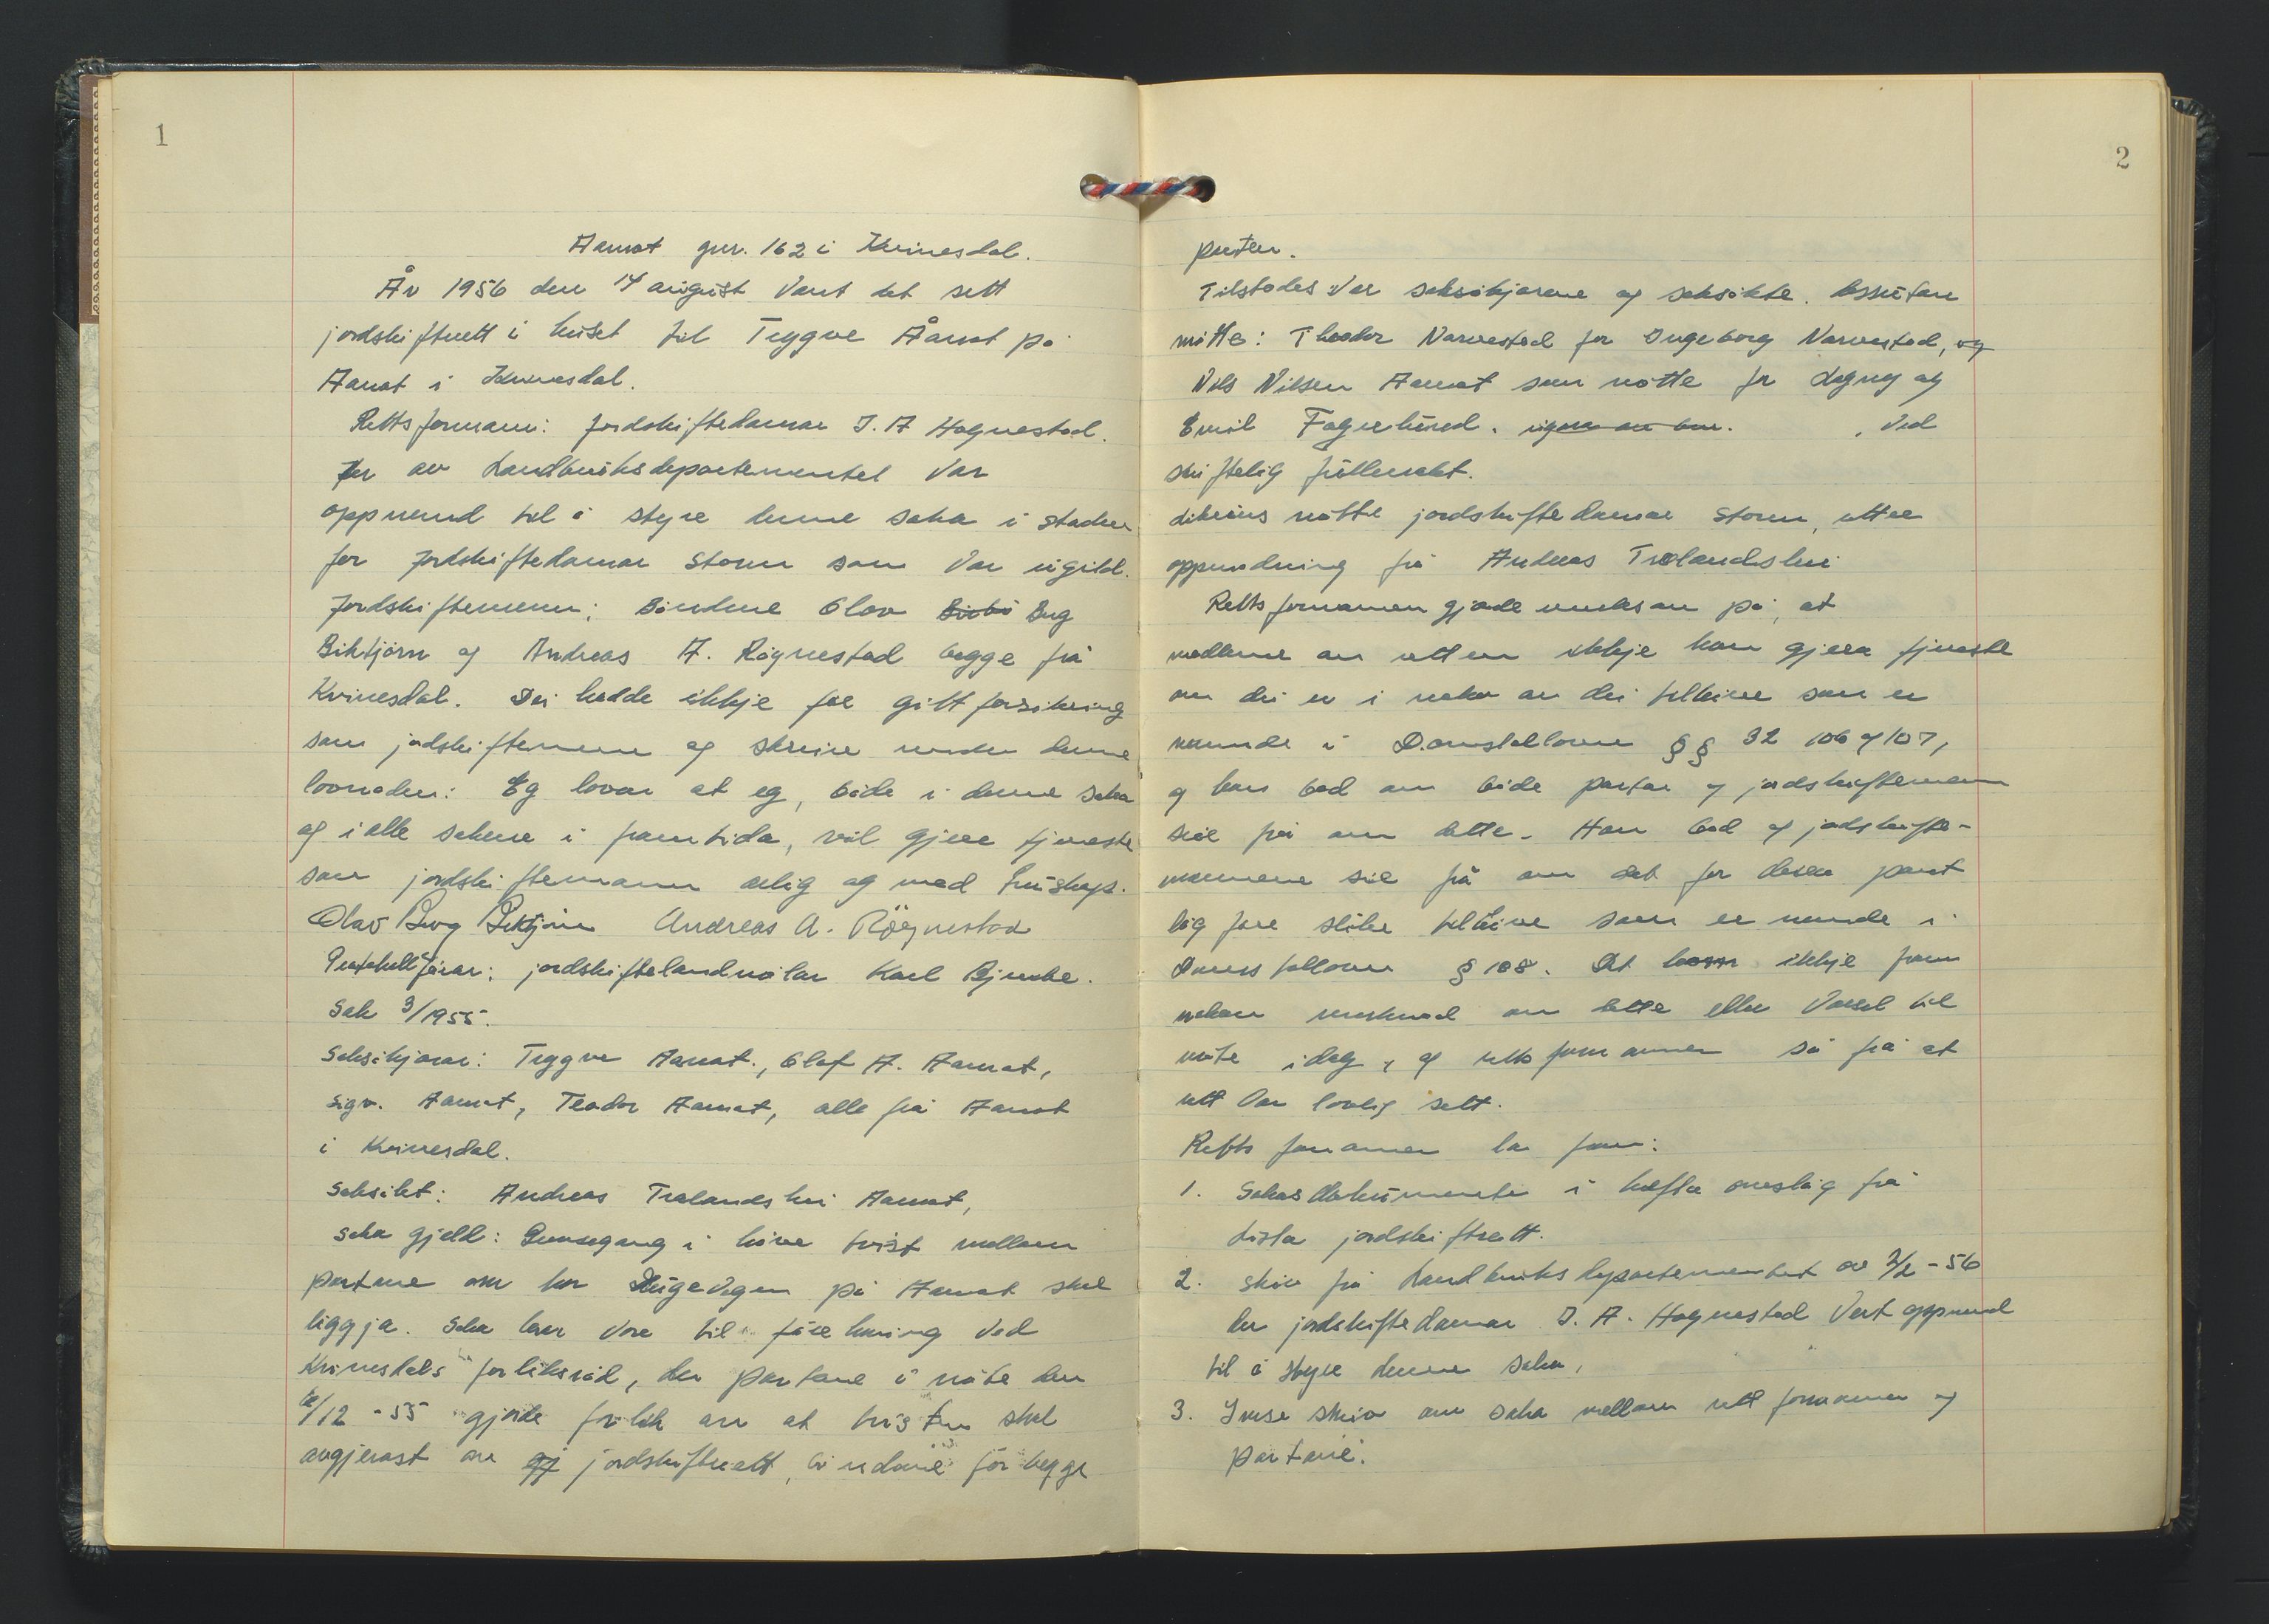 1
Aamot gnr. 162 i Kvinesdal.
År 1956 den 14 august vart det sett
jordskifterett i huset til Tryggve Åmot på
Aamot i Kvinesdal.
Rettsformann: Jordskiftedomar J. A Hognestad.
som av Landbruksdepartementet var
oppnemnd til å styre denne saka i staden
for jordskiftedomar Storm som var ugild.
Jordskiftemenn: Bøndene Olav Berg
Biktjørn og Andreas A. Røgnestad begge frå
Kvinesdal. Dei hadde ikkje før gitt forsikring
som jordskiftemenn og skreiv under denne
lovnaden: Eg lovar at eg, både i denne saka
og i alle sakene i framtida, vil gjere tjeneste
som jordskiftemann ærlig og med truskap.
Olav Berg Biktjørn Andreas A. Røgnestad
Protokollførar: jordskiftelandmålar Karl Bjerke.
Sak 3/1955.
Saksøkjarar: Tryggve Aamot., Olaf A. Aamot,
Sigv. Aamot, Teodor Aamot, alle frå Aamot
i Kvinesdal.
Saksøkt: Andreas Trælandshei Aamot,
Saka gjeld: Grensegang i høve tvist mellom
partane om kor Dugevegen på Aamot skal
liggja. Saka har vore til førehaving ved
Kvinesdals forliksråd, der partane i møte den
/12 - 55 gjorde forlik om at tvisten skal
avgjerast av jordskifterett, bindane for begge
2
parter.
Tilstades var saksøkjarane og saksøkte. Dessutan
møtte: Theodor Narvestad for Ingeborg Narvestad, og
Nils Nilsen Aamot som møtte for Dagny og
Emil Fagerlund. , ved
skriftelig fullmakt.
Likeins møtte jordskiftedomar Storm, etter
oppmodning frå Andreas Trælandshei
Rettsformannen gjorde merksam på, at
medlemer av retten ikkje kan gjera tjeneste
om dei er i noko av dei tilhøve som er
nemnde i Domstollovens §§ 32 106 og 107,
og han bad om både partar og jordskiftemenn
seie frå om dette. Han bad og jordskifte-
mennene seie frå om det for deira part
låg føre slike tilhøve som er nemnde i
Domstollovens § 108. Det kom ikkje fram
nokon merknad om dette eller varsel til
møte idag, og rettsformannen sa frå at
rett var lovlig sett.
Rettsformannen la fram:
1. Saksdokumenta i hefta omslag frå
Lista jordskifterett.
2. Skriv frå Landbruksdepartementet av 3/2 - 56
der jordskiftedomar J. A. Hognestad vert oppnemnd
til å styre denne saka,
3. Ymse skriv om saka mellom rettsformannen og
partane.